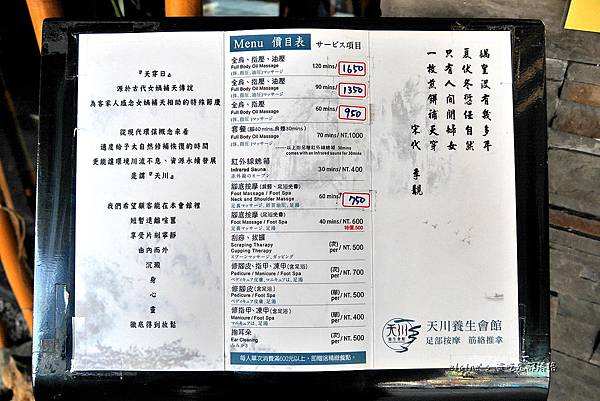 『天穿日』
源於古代女媧補天傳說
為客家人感念女媧補天相助的特殊節慶
從現代環保概念來看
適度給予大自然修補恢復的時間
更能讓環境川流不息、資源永續發展
是謂『天川』
我們希望顧客能在本會館裡
短暫遠離喧囂
享受片刻寧靜
由內而外
沉澱
身
心
靈
徹底得到放鬆
Menu 價目表 サービス項目
全身、指壓、油壓
Full Body Oil Massage
120 mins/ 1650
全身、指壓、油壓
Full Body Oil Massage
90 mins/ 1350
全身、指壓
Full Body Oil Massage
60 mins/ 950
套餐(腳40 mins.身體30mins)
Full Body Oil Massage
70 mins/ NT.1000
以上街另贈紅外線蜂箱 30mins
comes with an Infrared sauna for 30mins
紅外線蜂箱
Infrared Sauna
30 mins/ NT.400
腳底按摩
Foot Massage / Foot Spa
Neck and Shoulder Massge
60 mins/ 750
腳底按摩
Foot Massage / Foot Spa
40 mins/ NT.600
特價.500
刮痧、拔罐
Scraping Therapy
Cupping Therapy
(次) per / NT. 500
修腳皮、指甲、凍甲(含足浴)
Pedicure / Manicure / Foot Spa
(次) per / NT. 700
修腳皮(含足浴)
Pedicure / Foot Spa
(單) per / NT. 500
修指甲、凍甲(含足浴)
Manicure / Foot Spa
(單) per / NT. 400
掏耳朵
Ear Cleaning
(次) per / NT. 500
每人單次消費滿600元以上，即贈送精緻餐點。
媧皇沒有幾多年
夏伏冬愆任自然
只有人間閒婦女
一枚煎餅補天穿
宋代 李覯
天川
養生會館
天川養生會館
足部按摩 筋絡推拿